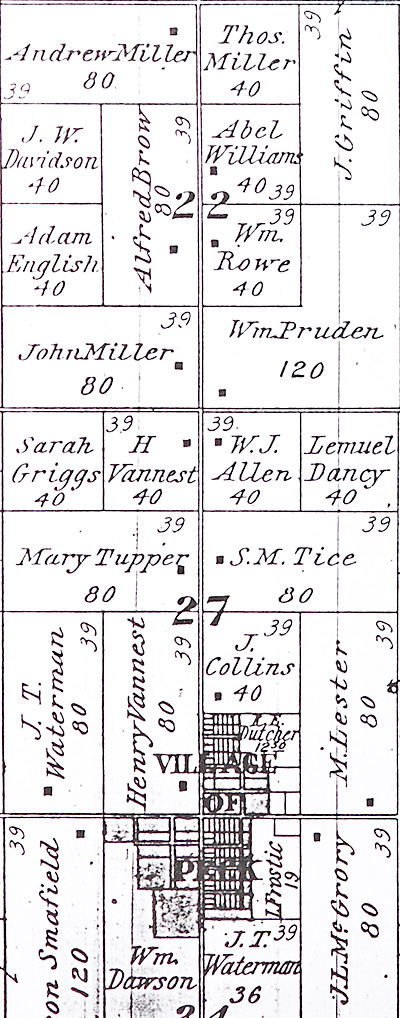 Andrew Miller
80
39
Thos.
Miller
40
39
J. Griffin
80
J. W.
Davidson
40
Alfred Brow
80
39
Abel
Williams
40 39
22
Adam
English
40
39
Wm.
Rowe
40
39
39
John Miller
80
Wm Pruden
120
Sarah
Griggs
40
39
H
Vannest
40
39
W. J.
Allen
40
Lemuel
Dancy
40
39
Mary Tupper
80
39
S. M. Tice
80
27
J. T.
Waterman
80
39
Henry Vannest
80
39
39
J.
Collins
40
Dutcher
M. Lester
80
39
VILLAGE
OF
PECK
39
on Smafield
120
Wm.
Dawson
19
39
J. T.
Waterman
36
J. L. McGrory
80
39